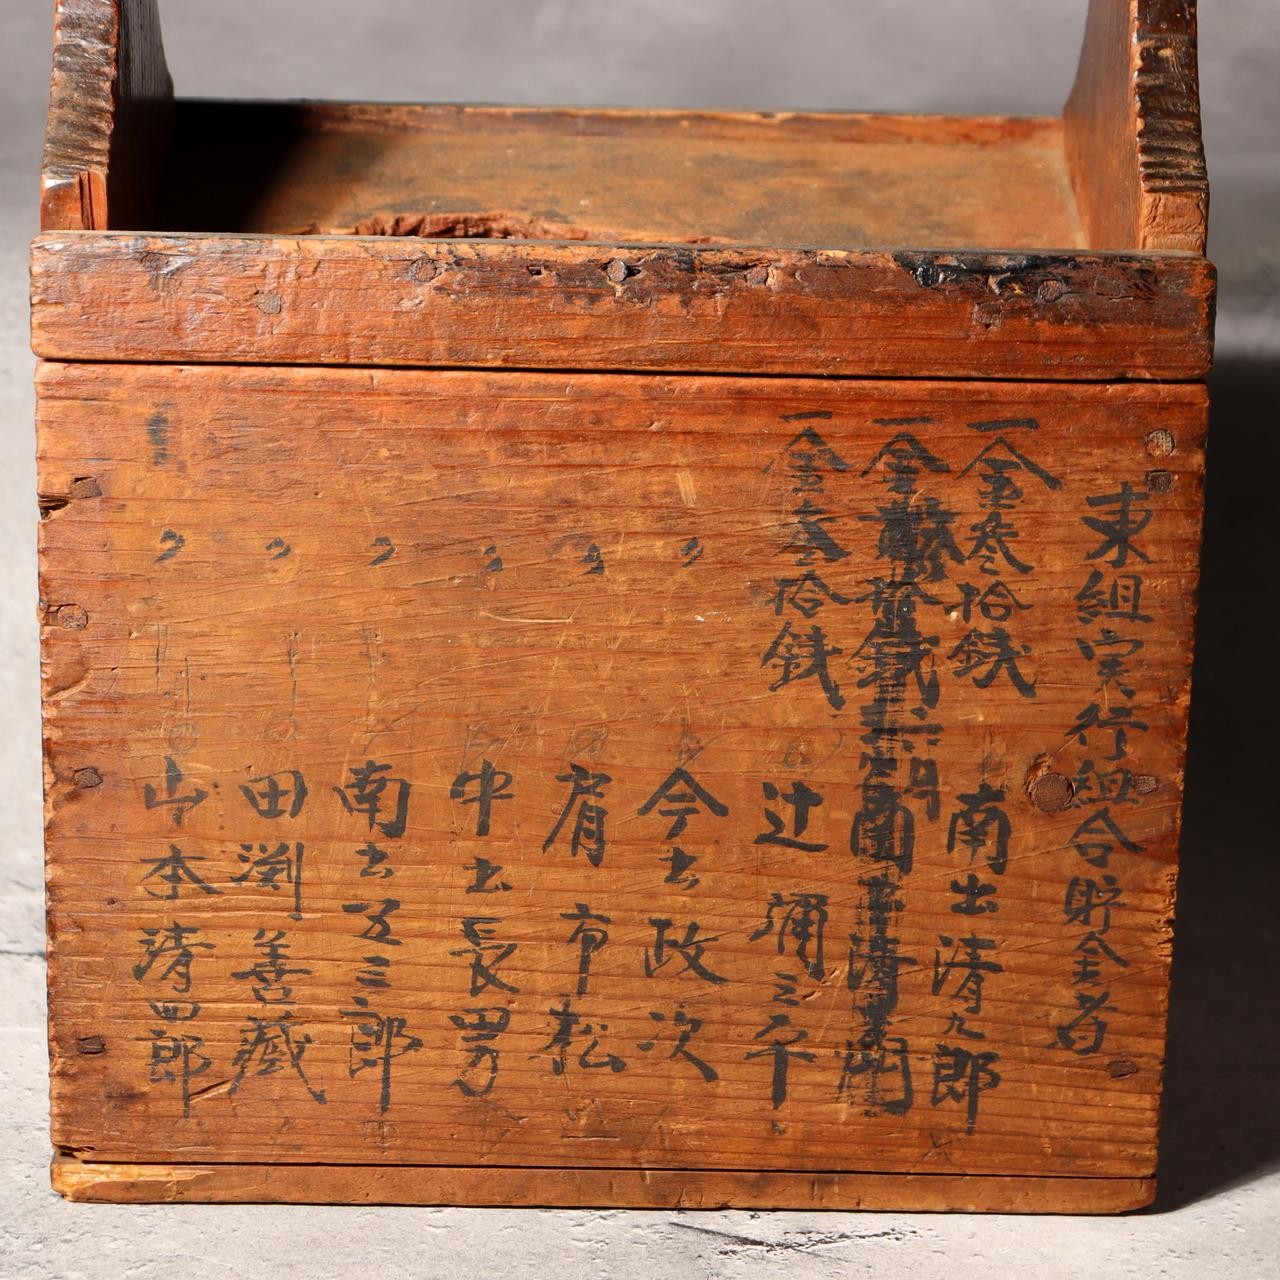 東組実行組合貯金者
一金参拾銭 南出清九郎
一金 拾銭 南
一金壱拾銭 辻弥三平
〃 今出政次
〃 肩市松
〃 中出長男
〃 南出五三郎
〃 田渕善蔵
〃 山本清四郎